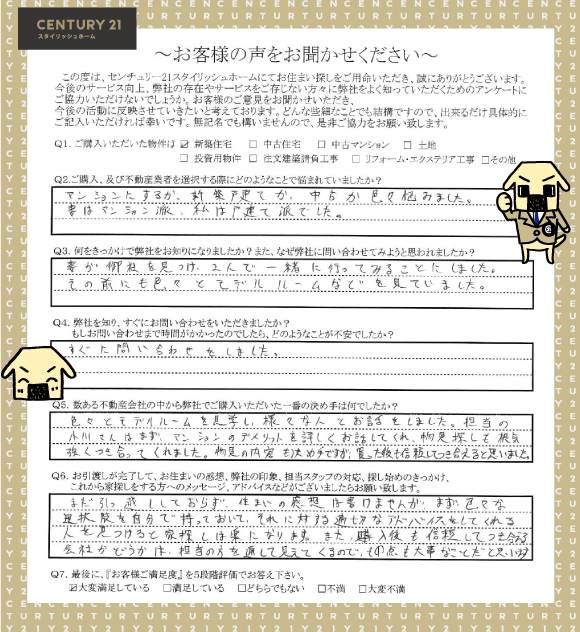 CENTURY 21
スタイリッシュホーム
～お客様の声をお聞かせください～
この度は、センチュリー21スタイリッシュホームにてお住まい探しをご用命いただき、誠にありがとうございます。
今後のサービス向上、弊社の存在やサービスをご存じない方々に弊社をよく知っていただくためのアンケートに
ご協力いただけないでしょうか。お客様のご意見をお聞かせいただき、
今後の活動に反映させていきたいと考えております。どんな些細なことでも結構ですので、出来るだけ具体的に
ご記入いただければ幸いです。無記名でも構いませんので、是非ご協力をお願い致します。
Q1. ご購入いただいた物件は ☑ 新築住宅 □ 中古住宅 □ 中古マンション □ 土地
□ 投資用物件 □ 注文建築請負工事 □ リフォーム・エクステリア工事 □その他
Q2.ご購入、及び不動産業者を選択する際にどのようなことで悩まれていましたか?
マンションにするか、新築戸建てか、中古か色々悩みました。
妻はマンション派、私は戸建て派でした。
Q3. 何をきっかけで弊社をお知りになりましたか?また、なぜ弊社に問い合わせてみようと思われましたか?
妻が御社を見つけ、2人で一緒に行ってみることにしました。
その前にも色々とモデルルームなどを見ていました。
Q4. 弊社を知り、すぐにお問い合わせをいただきましたか?
もしお問い合わせまで時間がかかったのでしたら、どのようなことが不安でしたか?
すぐに問い合わせをしました。
Q5. 数ある不動産会社の中から弊社でご購入いただいた一番の決め手は何でしたか?
色々とモデルルームを見学し、様々な人とお話をしました。担当の
小川さんはまず、マンションのデメリットを詳しくお話してくれ、物見探しも根気
強くつき合ってくれました。物見の内容も決め手ですが、買った後も信頼してつき合えると思いました。
Q6. お引渡しが完了して、お住まいの感想、弊社の印象、担当スタッフの対応、探し始めのきっかけ、
これから家探しをする方へのメッセージ、アドバイスなどがございましたらお願い致します。
まだ引っ越ししておらず、住まいの感想は書けませんが、まず色々な
選択肢を自分で持っておいて、それに対する適切なアドバイスをしてくれる
人を見つけると家探しは楽になります。また、購入後も信頼してつき合える
会社かどうかは、担当の方を通して見えてくるので、その点も大事なことだと思います
Q7. 最後に、『お客様ご満足度』を5段階評価でお答え下さい。
☑大変満足している □満足している □どちらでもない □不満 □大変不満